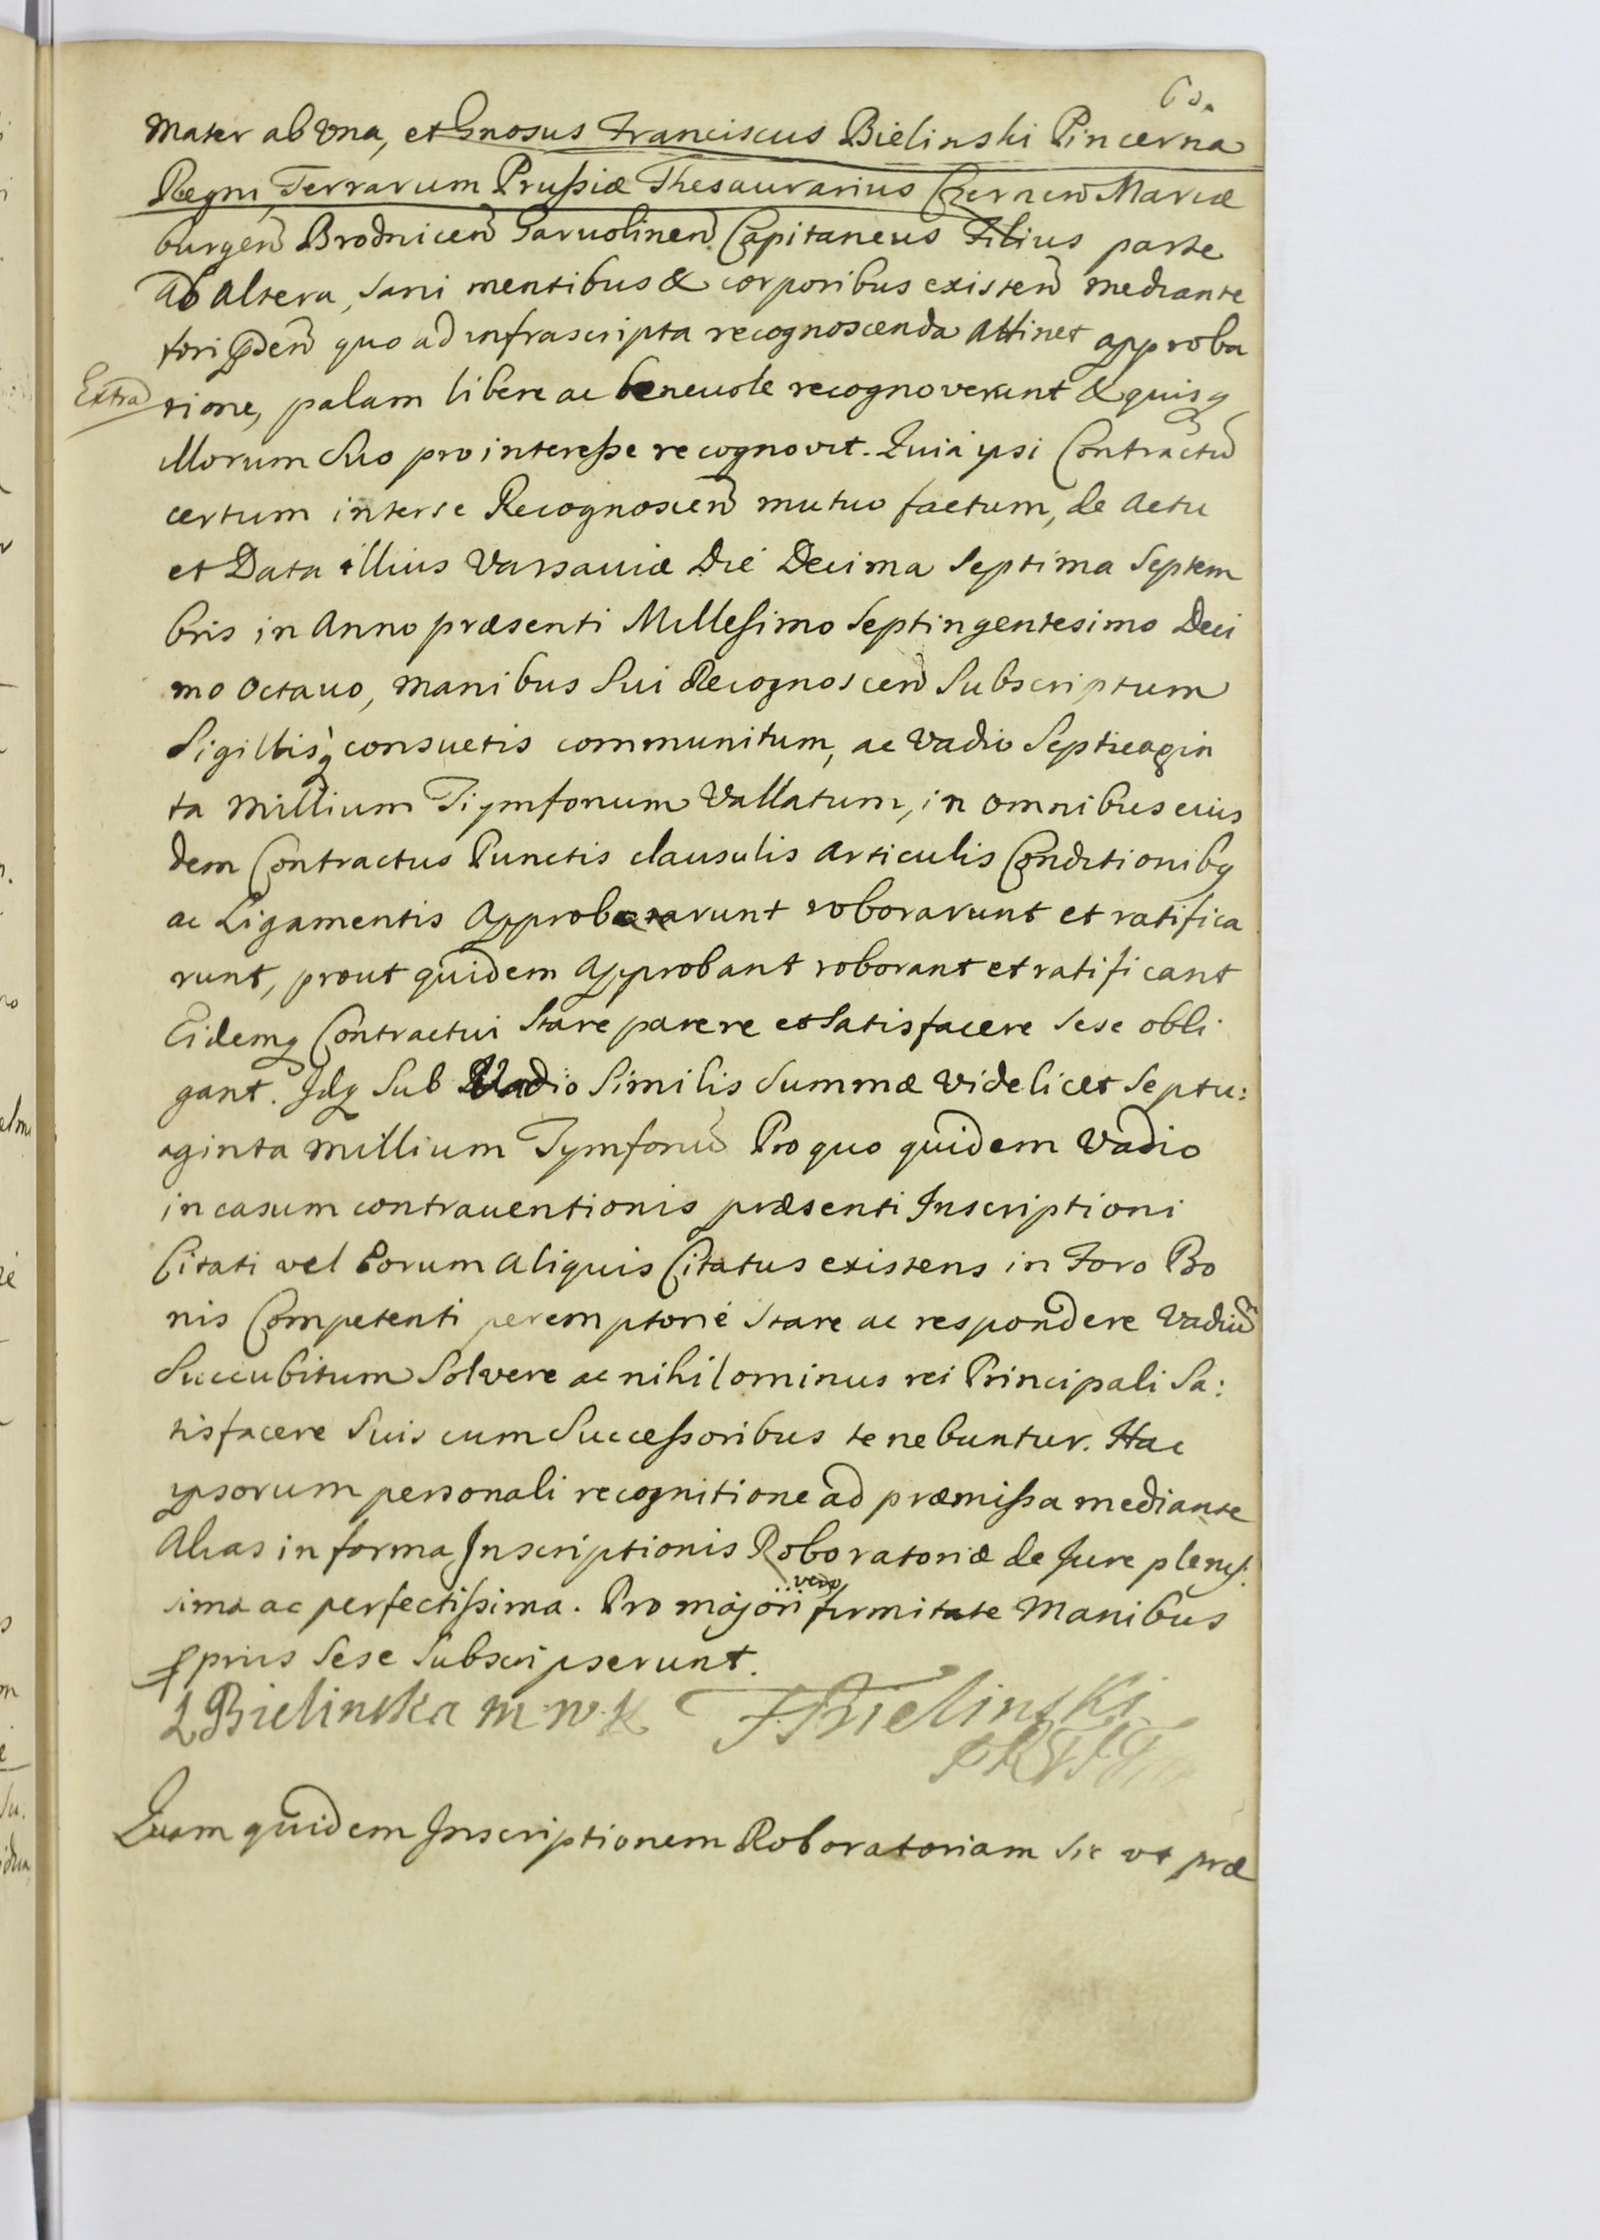 Mater ab Vna, et Gnosus Franciscus Bielinski Pincerna
Regni, Terrarum Prußiæ Thesaurarius Czernen Mariæ
burgen Brodnicen Garuolinen Capitaneus Filius parte
ab altera, sani mentibus & corporibus existen mediante
fori quo ad infrascripta recognoscenda attinet approba
Extra
tione, palam libere ac beneuole recognoverunt & quisq
illorum Suo pro intereße recognovit. Quia ipsi Contractū
certum inter se Recognoscen mutuo factum, de actu
et Data illius Varsauiæ Die Decima Septima Septem
bris in Anno præsenti Millesimo Septingentesimo Deci
mo octauo, manibus Sui Recognoscen Subscriptum
Sigillisq consuetis communitum, ac Vadio
ta millium Tymfonum Vallatum, in omnibus eius
dem Contractus Punctis clausulis articulis Conditionibq
ac Ligamentis roborarunt et ratifica
runt, prout quidem approbant roborant et ratificant
Eidemq Contractui Stare parere et Satisfacere Sese obli
gant. Idq Sub Vadio Similis Summæ Videlicet Septu:
aginta millium Tymfonū Pro quo quidem Vadio
in casum contrauentionis præsenti Inscriptioni
Citati vel Eorum aliquis Citatus existens in Foro Bo
nis Competenti peremptorie Stare ac respondere Vadiū
Succubitum Solvere ac nihilominus rei Principali Sa:
tisfacere Suis cum Succeßoribus tenebuntur. Hac
ipsorum personali recognitione ad præmißa mediante
Alias in forma Inscriptionis Roboratoriæ de Jure pleniß:
sima ac perfectißima. Pro majori vero firmitate Manibus
prijs Sese Subscripserunt.
L Bielinska m. w. k FBielinski
Quam quidem Inscriptionem Roboratoriam Sic vt præ